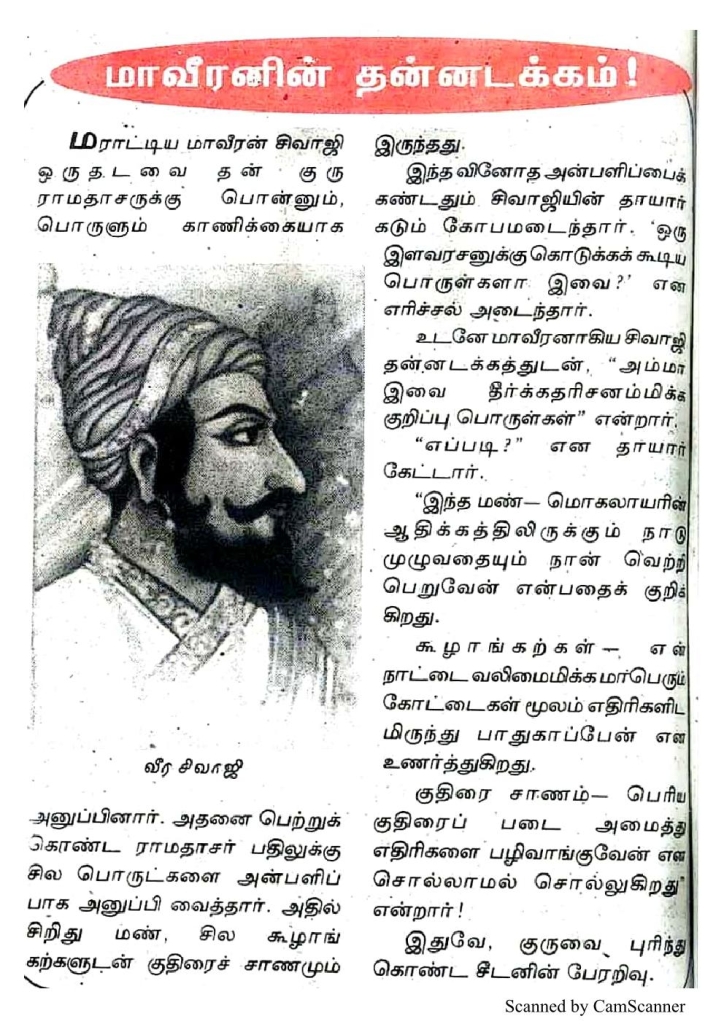 மாவீரனின் தன்னடக்கம்!
மராட்டிய மாவீரன் சிவாஜி
ஒருதடவை தன் குரு
ராமதாசருக்கு பொன்னும்,
பொருளும் காணிக்கையாக
வீர சிவாஜி
அனுப்பினார். அதனை பெற்றுக்
கொண்ட ராமதாசர் பதிலுக்கு
சில பொருட்களை அன்பளிப்
பாக அனுப்பி வைத்தார். அதில்
சிறிது மண், சில கூழாங்
கற்களுடன் குதிரைச் சாணமும்
இருந்தது.
இந்த வினோத அன்பளிப்பைக்
கண்டதும் சிவாஜியின் தாயார்
கடும் கோபமடைந்தார். 'ஒரு
இளவரசனுக்கு கொடுக்கக் கூடிய
பொருள்களா இவை?' என
எரிச்சல் அடைந்தார்.
உடனே மாவீரனாகிய சிவாஜி
தன்னடக்கத்துடன், "அம்மா
இவை தீர்க்கதரிசனம்மிக்க
குறிப்பு பொருள்கள்" என்றார்.
"எப்படி?" என தாயார்
கேட்டார்.
"இந்த மண்— மொகலாயரின்
ஆதிக்கத்திலிருக்கும் நாடு
முழுவதையும் நான் வெற்றி
பெறுவேன் என்பதைக் குறிக்
கிறது.
கூழாங்கற்கள்— என்
நாட்டை வலிமைமிக்க மாபெரும்
கோட்டைகள் மூலம் எதிரிகளிட
மிருந்து பாதுகாப்பேன் என
உணர்த்துகிறது.
குதிரை சாணம்— பெரிய
குதிரைப் படை அமைத்து
எதிரிகளை பழிவாங்குவேன் என
சொல்லாமல் சொல்லுகிறது"
என்றார்!
இதுவே, குருவை புரிந்து
கொண்ட சீடனின் பேரறிவு.
Scanned by CamScanner